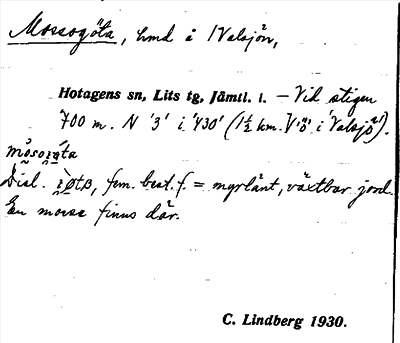 Mossogöta, hmd å Valsjön,
Hotagens sn, Lits tg, Jämtl. l. – Vid stigen
700 m. N '3' i '430' (1½ km. V 'ö' i 'Valsjö').
Dial. fem. best. f. = myrlänt, växtbar jord.
En mosse finns där.
C. Lindberg 1930.